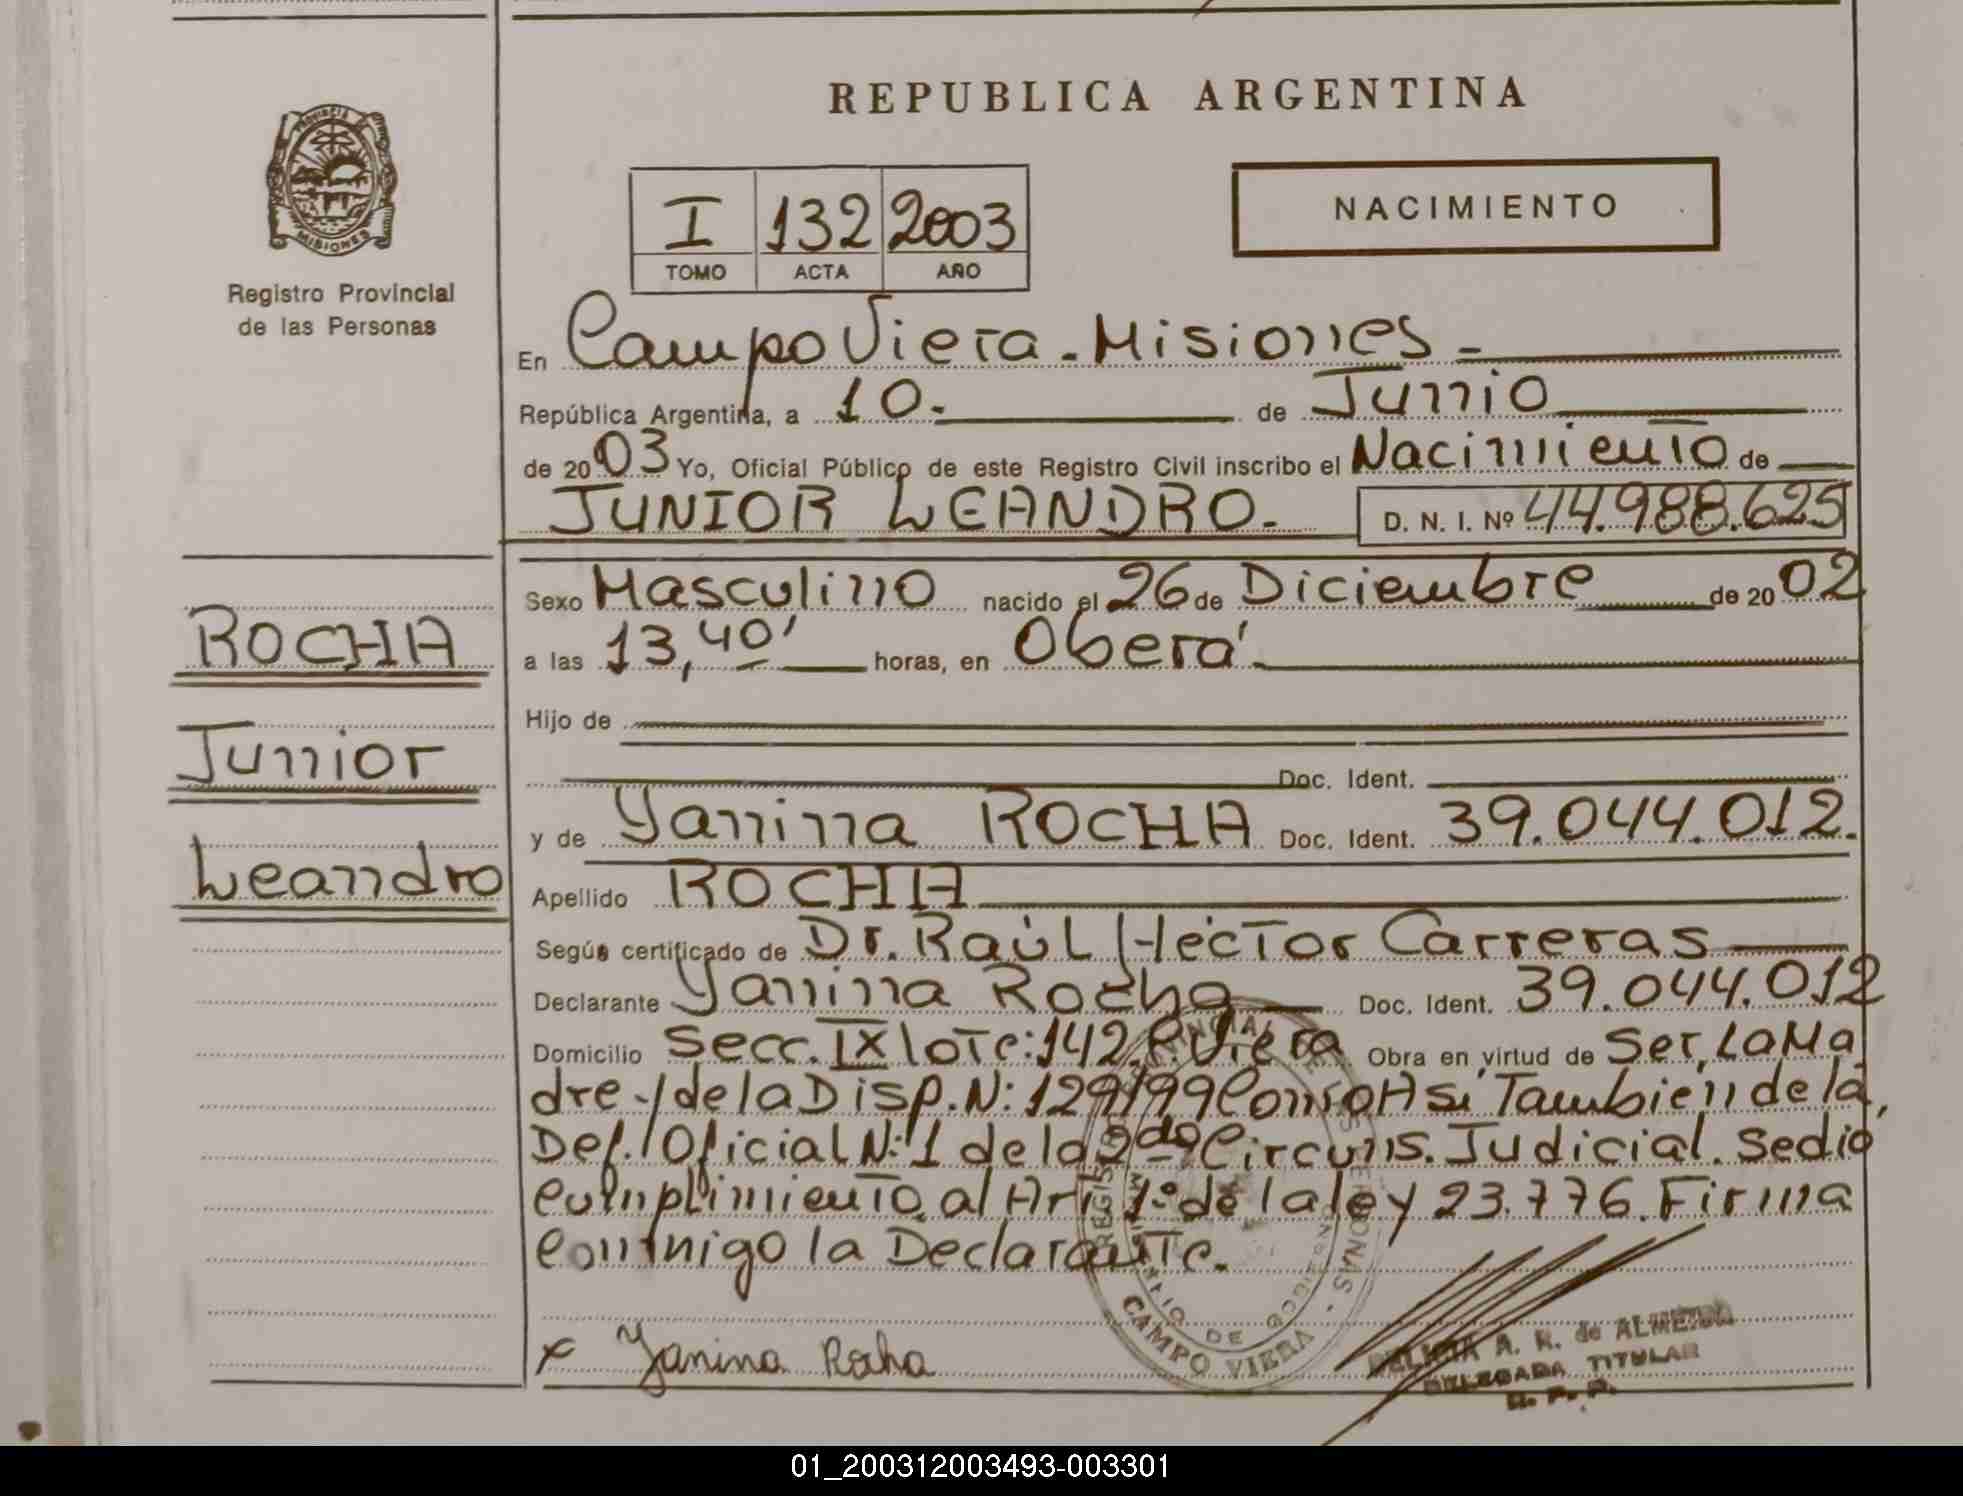 REPUBLICA ARGENTINA
PROVINCIA DE
MISIONES
Registro Provincial
de las Personas
I 132 2003
TOMO ACTA AÑO
NACIMIENTO
En Campo Viera - Misiones -
República Argentina, a 10. de Junio
de 2003 Yo, Oficial Público de este Registro Civil inscribo el Nacimiento de
JUNIOR LEANDRO. D. N. I. Nº 44.988.625
ROCHA
Junior
Leandro
Sexo Masculino nacido el 26 de Diciembre de 2002
a las 13,40' horas, en Oberá
Hijo de
Doc. Ident.
y de Yanina ROCHA Doc. Ident. 39.044.012.
Apellido ROCHA
Según certificado de Dr. Raúl Héctor Carreras
Declarante Yanina Rocha Doc. Ident. 39.044.012
Domicilio Secc. IX lote: 142. C. Viera Obra en virtud de Ser, La Ma
dre - y de la Disp. N: 129/99 Como Asi Tambien de la,
Def. Oficial N: 1 de la 2da Circuns. Judicial. Se dio
Cumplimiento al Art. 1º de la ley 23.776. Firma
Conmigo la Declarante.
x Yanina Rocha
CAMPO VIERA
A. R. de ALMEIDA
DELEGADA TITULAR
R. P. P.
01_200312003493-003301